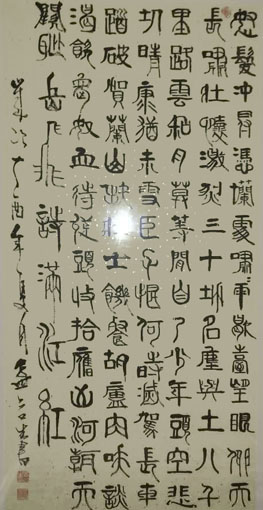 怒髮冲冠憑闌處瀟雨歇臺望眼仰天
長嘯壯懷激烈三十功名塵與土八千
里路雲和月莫等閒白了少年頭空悲
切靖康猶未雪臣子恨何時滅駕長車
踏破賀蘭山缺壯士饑餐胡虜肉笑談
渴飲匈奴血待從頭收拾舊山河朝天
闕 岳飛詩滿江紅
丁酉年夏月 書